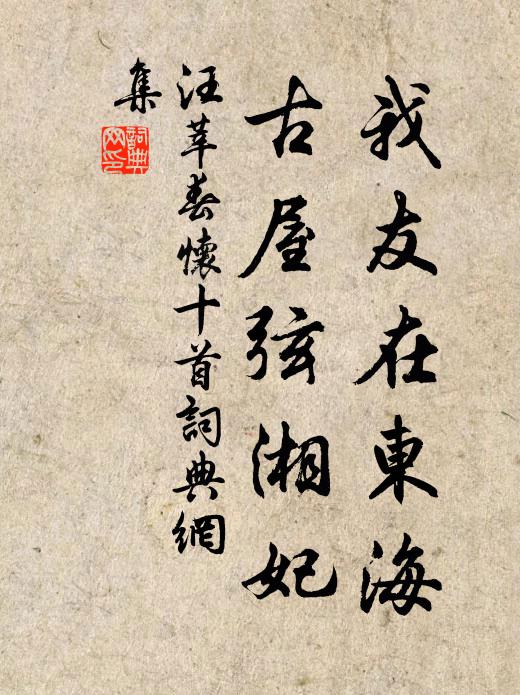 我友在東海
古屋弦湘妃
汪莘春懷十首詞典網
集
詞典
网印